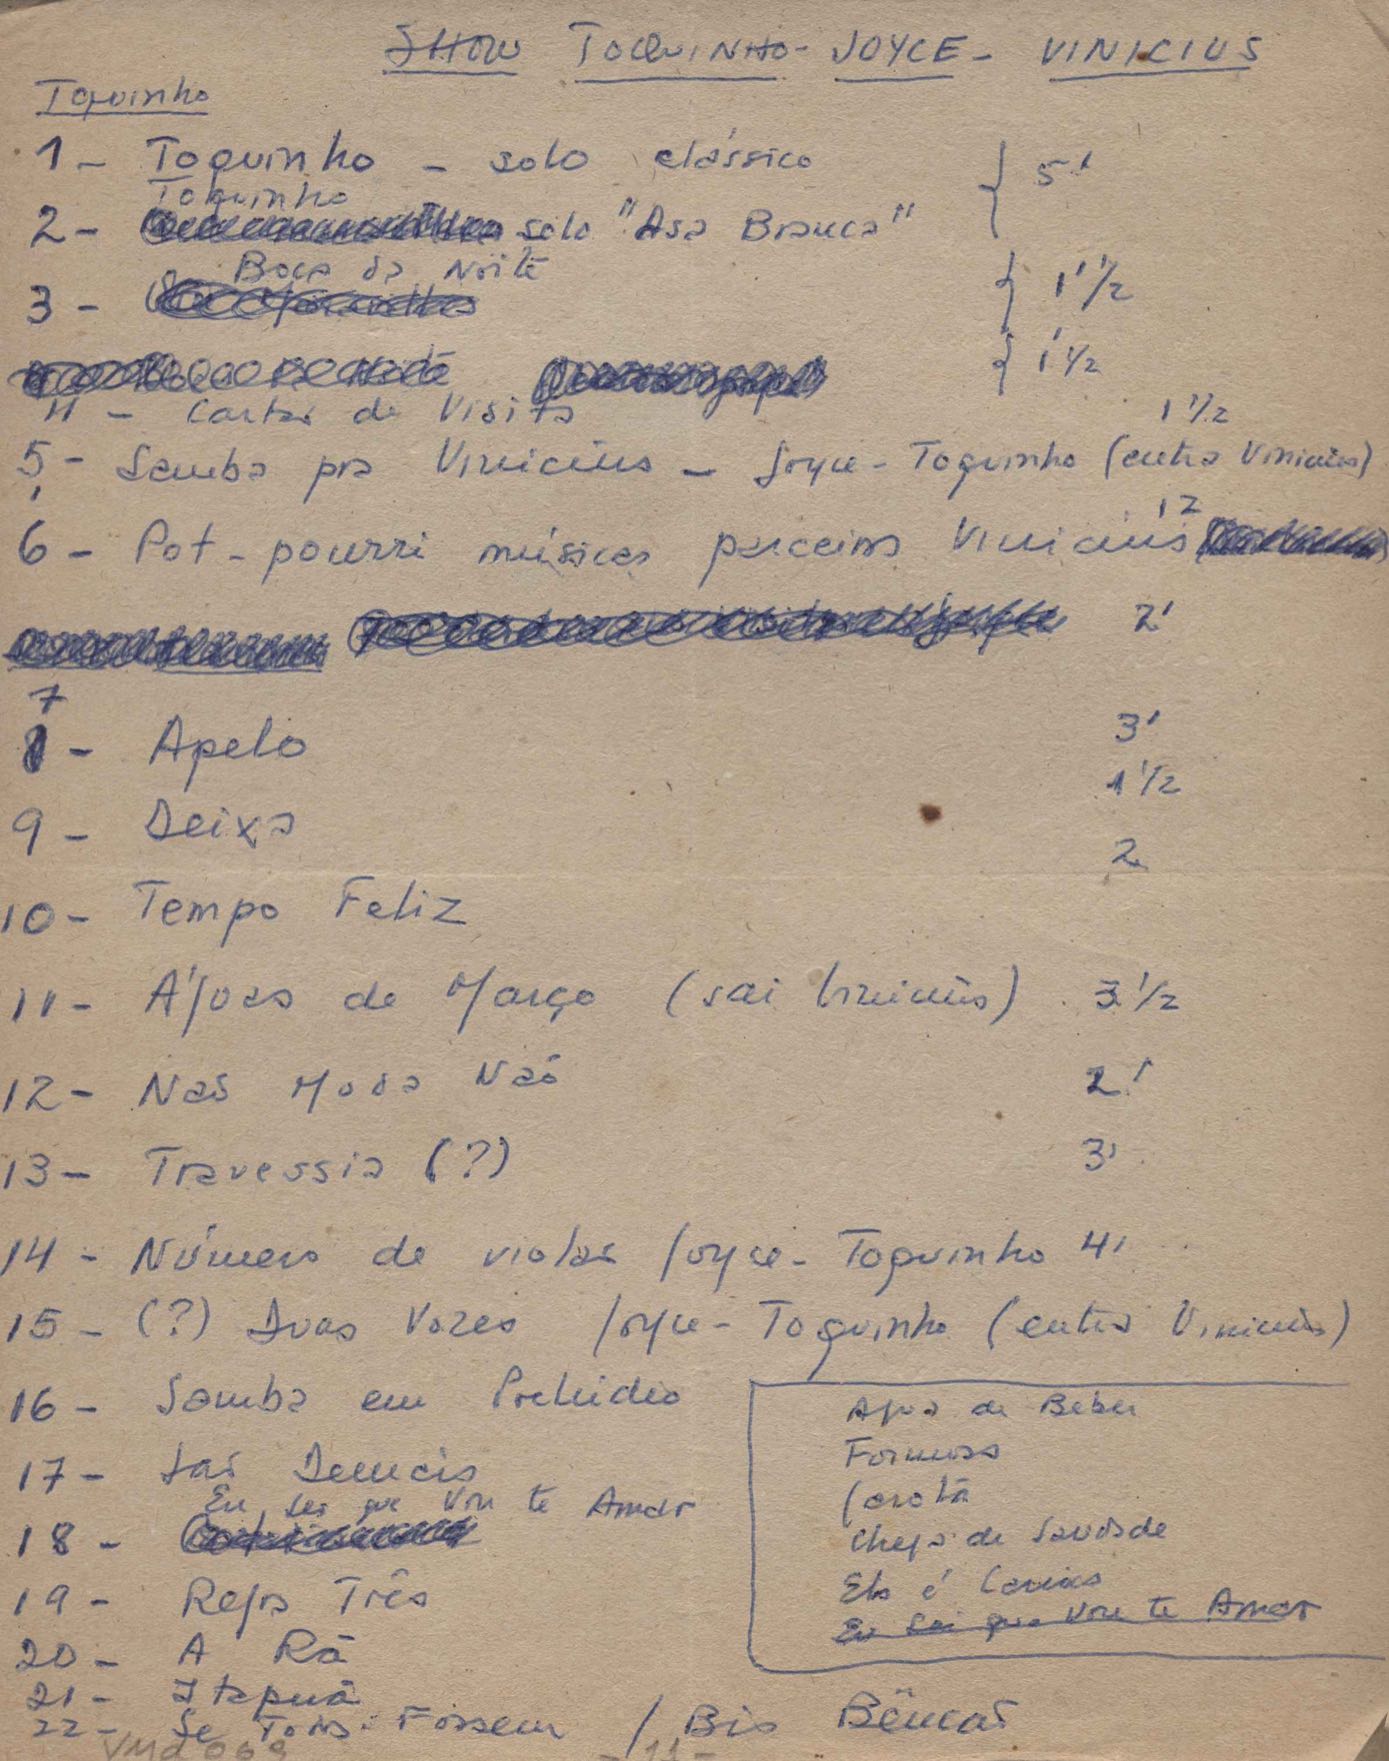 SHOW TOQUINHO - JOYCE - VINICIUS
Toquinho
1 - Toquinho - solo clássico } 5'
Toquinho
2 - solo "Asa Branca"
Boca da Noite } 1' 1/2
3 -
} 1' 1/2
4 - Cartão de Visita 1 1/2
5 - Samba pra Vinicius - Joyce - Toquinho (entra Vinicius)
12
6 - Pot-pourri músicas parceiros Vinicius
2'
7
8 - Apelo 3'
1' 1/2
9 - Deixa
2
10 - Tempo Feliz
11 - Águas de Março (sai Vinicius) 3' 1/2
12 - Não Moda Não 2'
13 - Travessia (?) 3'
14 - Número de violão Joyce - Toquinho 4'
15 - (?) Duas Vozes Joyce - Toquinho (entra Vinicius)
16 - Samba em Prelúdio
17 - Tas Demais
Eu sei que vou te Amar
18 -
19 - Regra Três
20 - A Rã
21 - Itapuã
22 - Se Todos Fossem / Bis Bênção
Agua de Beber
Formosa
Garota
Chega de Saudade
Ela é Carioca
Eu sei que vou te Amar
VMd 069
- 11 -